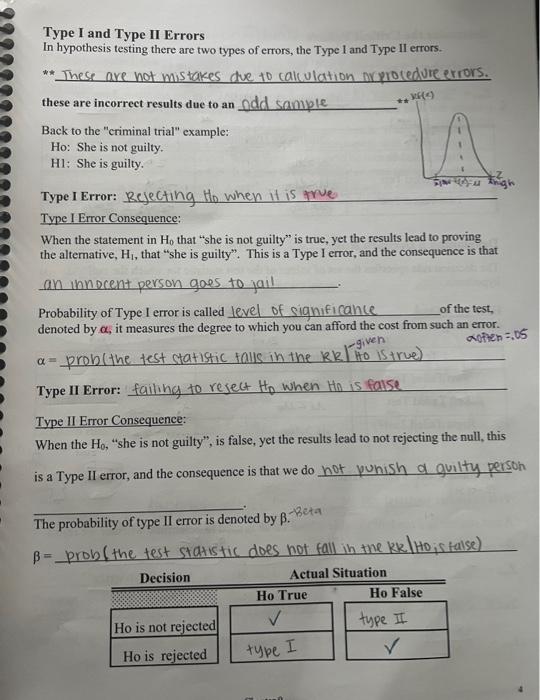 Type I and Type II Errors
In hypothesis testing there are two types of errors, the Type I and Type II errors.
** These are not mistakes due to calculation or procedure errors.
these are incorrect results due to an odd sample **
Back to the "criminal trial" example:
Ho: She is not guilty.
H1: She is guilty.
Type I Error: Rejecting Ho when it is true
Type I Error Consequence:
When the statement in H₀ that "she is not guilty" is true, yet the results lead to proving
the alternative, H₁, that "she is guilty". This is a Type I error, and the consequence is that
an innocent person goes to jail.
Probability of Type I error is called level of significance of the test,
denoted by α, it measures the degree to which you can afford the cost from such an error.
given
α often = .05
α = prob(the test statistic falls in the RR | Ho is true)
Type II Error: failing to reject Ho when Ho is false
Type II Error Consequence:
When the H₀, "she is not guilty", is false, yet the results lead to not rejecting the null, this
is a Type II error, and the consequence is that we do not punish a guilty person
.
The probability of type II error is denoted by β. Beta
β = prob(the test statistic does not fall in the RR | Ho is false)
Decision Actual Situation
Ho True Ho False
Ho is not rejected ✓ type II
Ho is rejected type I ✓
4